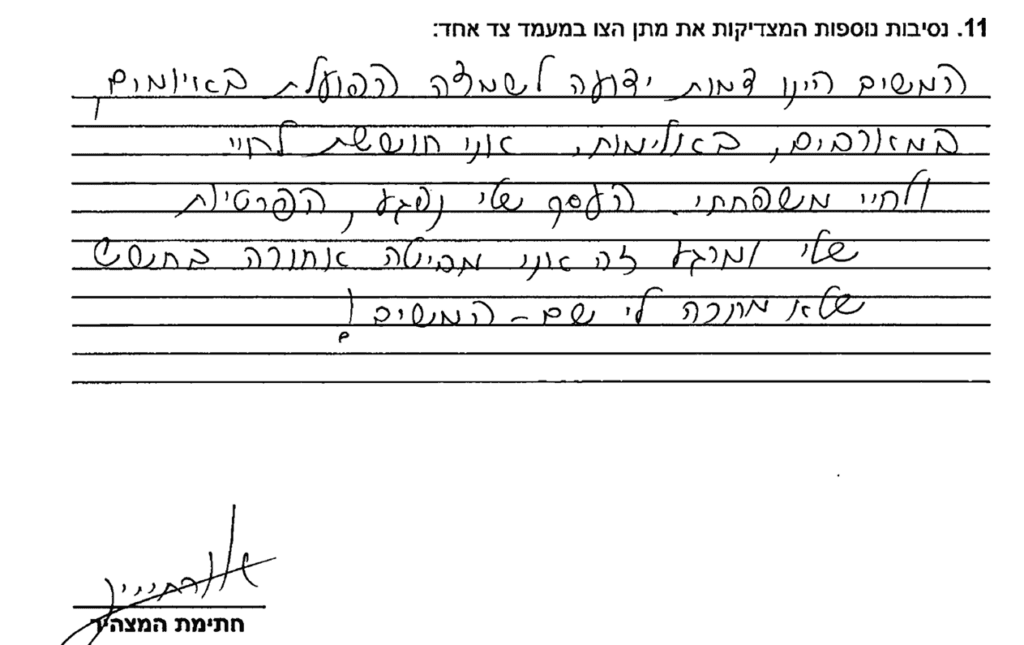 11. נסיבות נוספות המצדיקות את מתן הצו במעמד צד אחד:
המשיב הינו דמות ידועה לשמצה הפועלת באיומים,
במארבים, באלימות. אני חוששת לחיי
ולחיי משפחתי. העסק שלי נפגע, הפרטיות
שלי ומרגע זה אני מביטה אחורה בחשש
שלא מחכה לי שם - המשיב!
חתימת המצהיר